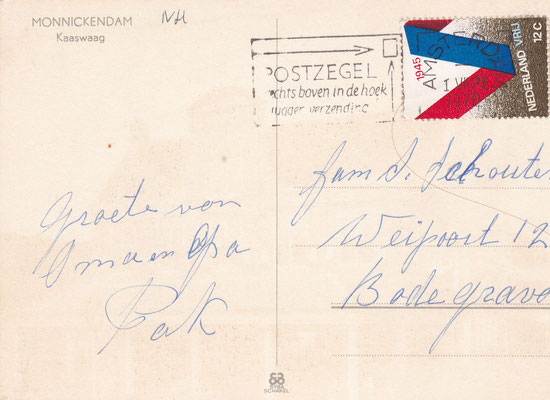 MONNICKENDAM
Kaaswaag
NH
POSTZEGEL
chts boven in de hoek
lugger verzending
AMSTERDA
1945
NEDERLAND VRIJ 12C
Groete van
Oma en Opa
Pak
fam. S. Schoute
Weipoort 12
Bodegrave